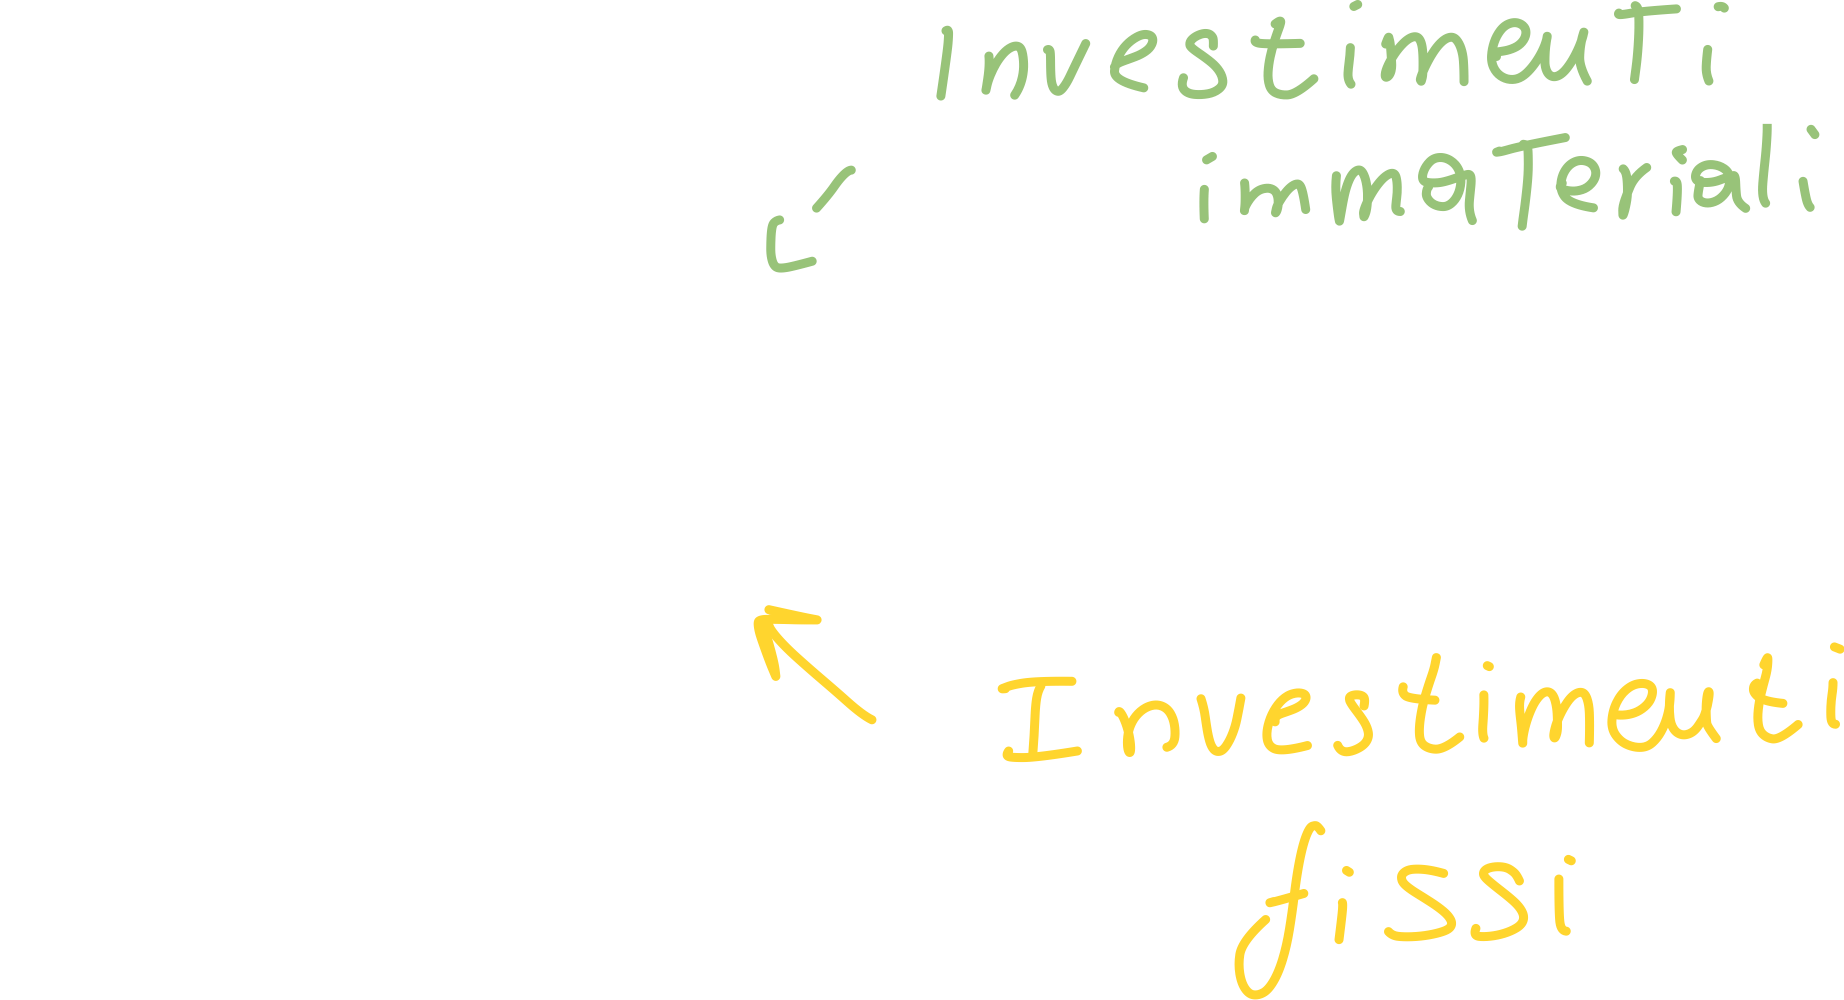 Investimenti
immateriali
Investimenti
fissi